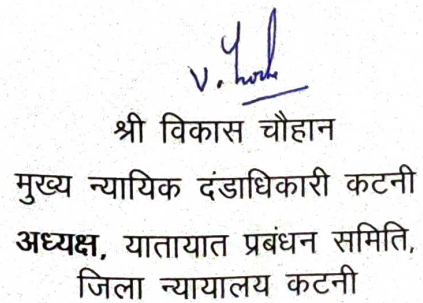 श्री विकास चौहान
मुख्य न्यायिक दंडाधिकारी कटनी
अध्यक्ष, यातायात प्रबंधन समिति,
जिला न्यायालय कटनी